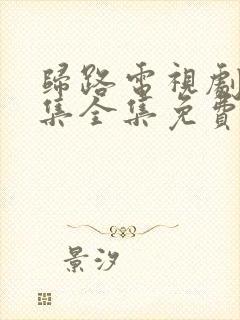 歸路電視劇
集全集免費
景汐